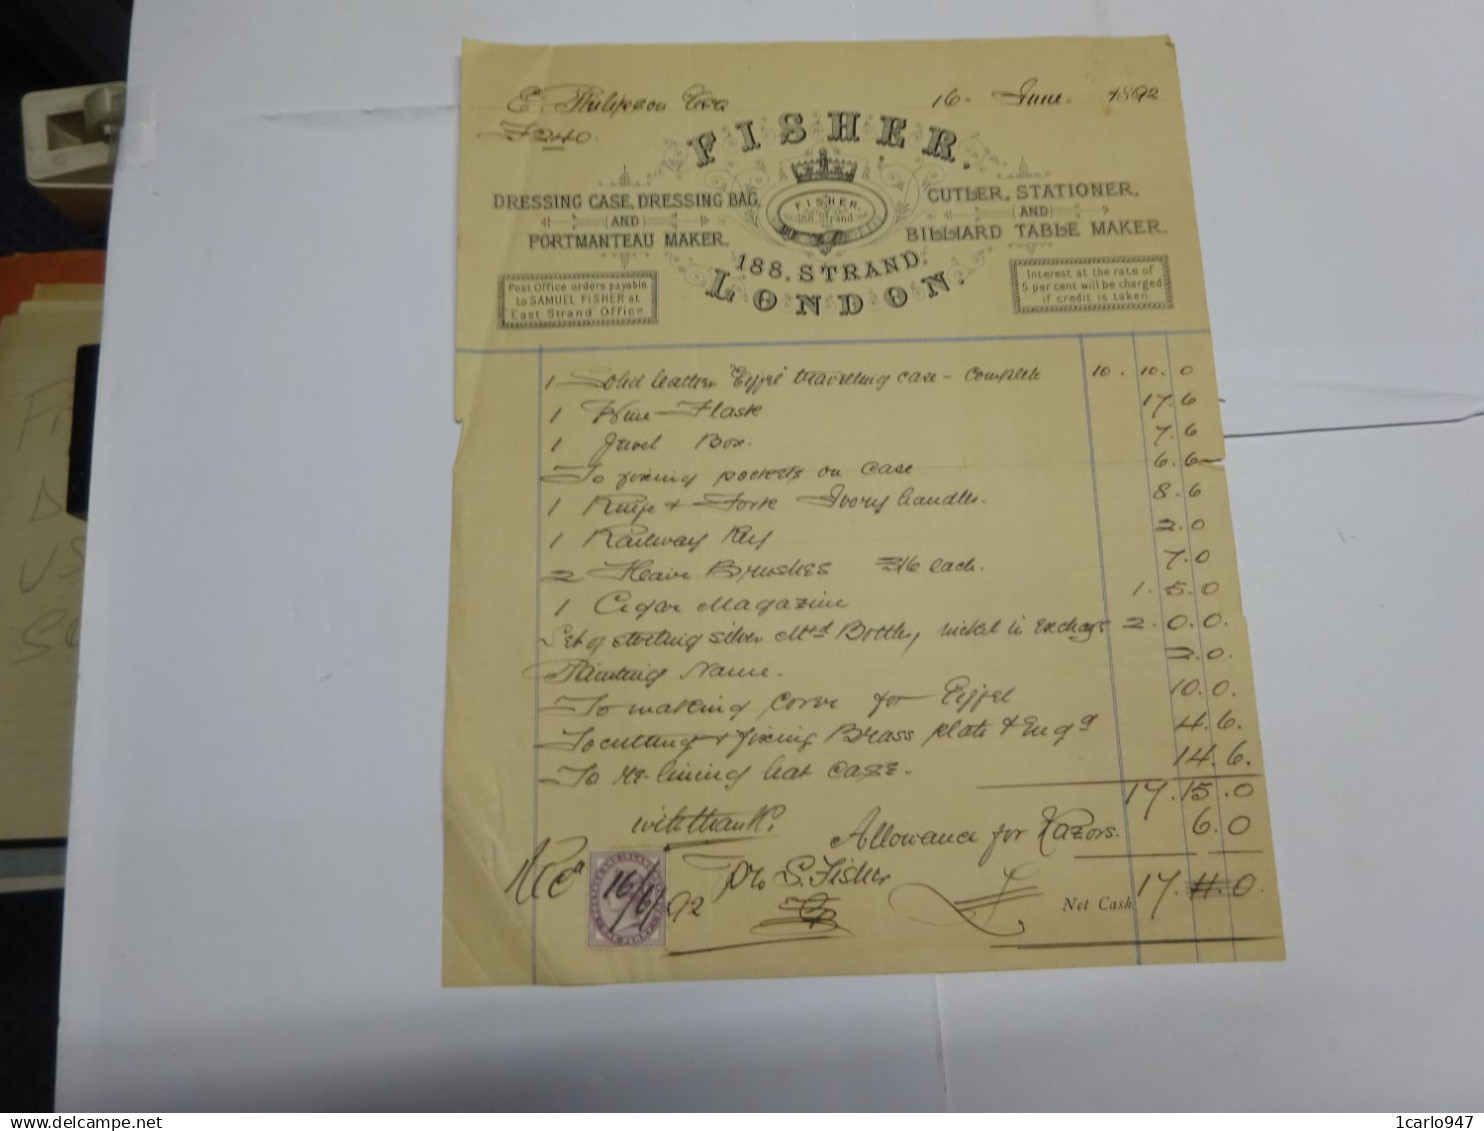 E. Philipson Esq
16 - June. 1892
FISHER.
DRESSING CASE, DRESSING BAG,
AND
PORTMANTEAU MAKER.
CUTLER, STATIONER,
AND
BILLIARD TABLE MAKER.
FISHER.
188 Strand
188, STRAND,
LONDON.
Post Office orders payable
to SAMUEL FISHER at
East Strand Office.
Interest at the rate of
5 per cent will be charged
if credit is taken
1 Solid leather "Eiffel" travelling case - complete 10. 10. 0
1 Wine Flask 17. 6
1 Jewel Box. 7. 6
To fixing pockets on case 6. 6
1 Knife & Fork Ivory handles. 8. 6
1 Railway Key 2. 0
2 Hair Brushes 3/6 each. 7. 0
1 Cigar Magazine 1. 5. 0
Set of sterling silver Mtd Bottles, nickel in exchange 2. 0. 0.
Painting Name. 2. 0.
To making cover for Eiffel 10. 0.
To cutting & fixing Brass plate & Engd 4. 6.
To re-lining hat case. 14. 6.
17. 15. 0
with thanks.
Allowance for Razors. 6. 0
Recd
16/6/92
pro S. Fisher
Net Cash 17. 0.
1carlo947